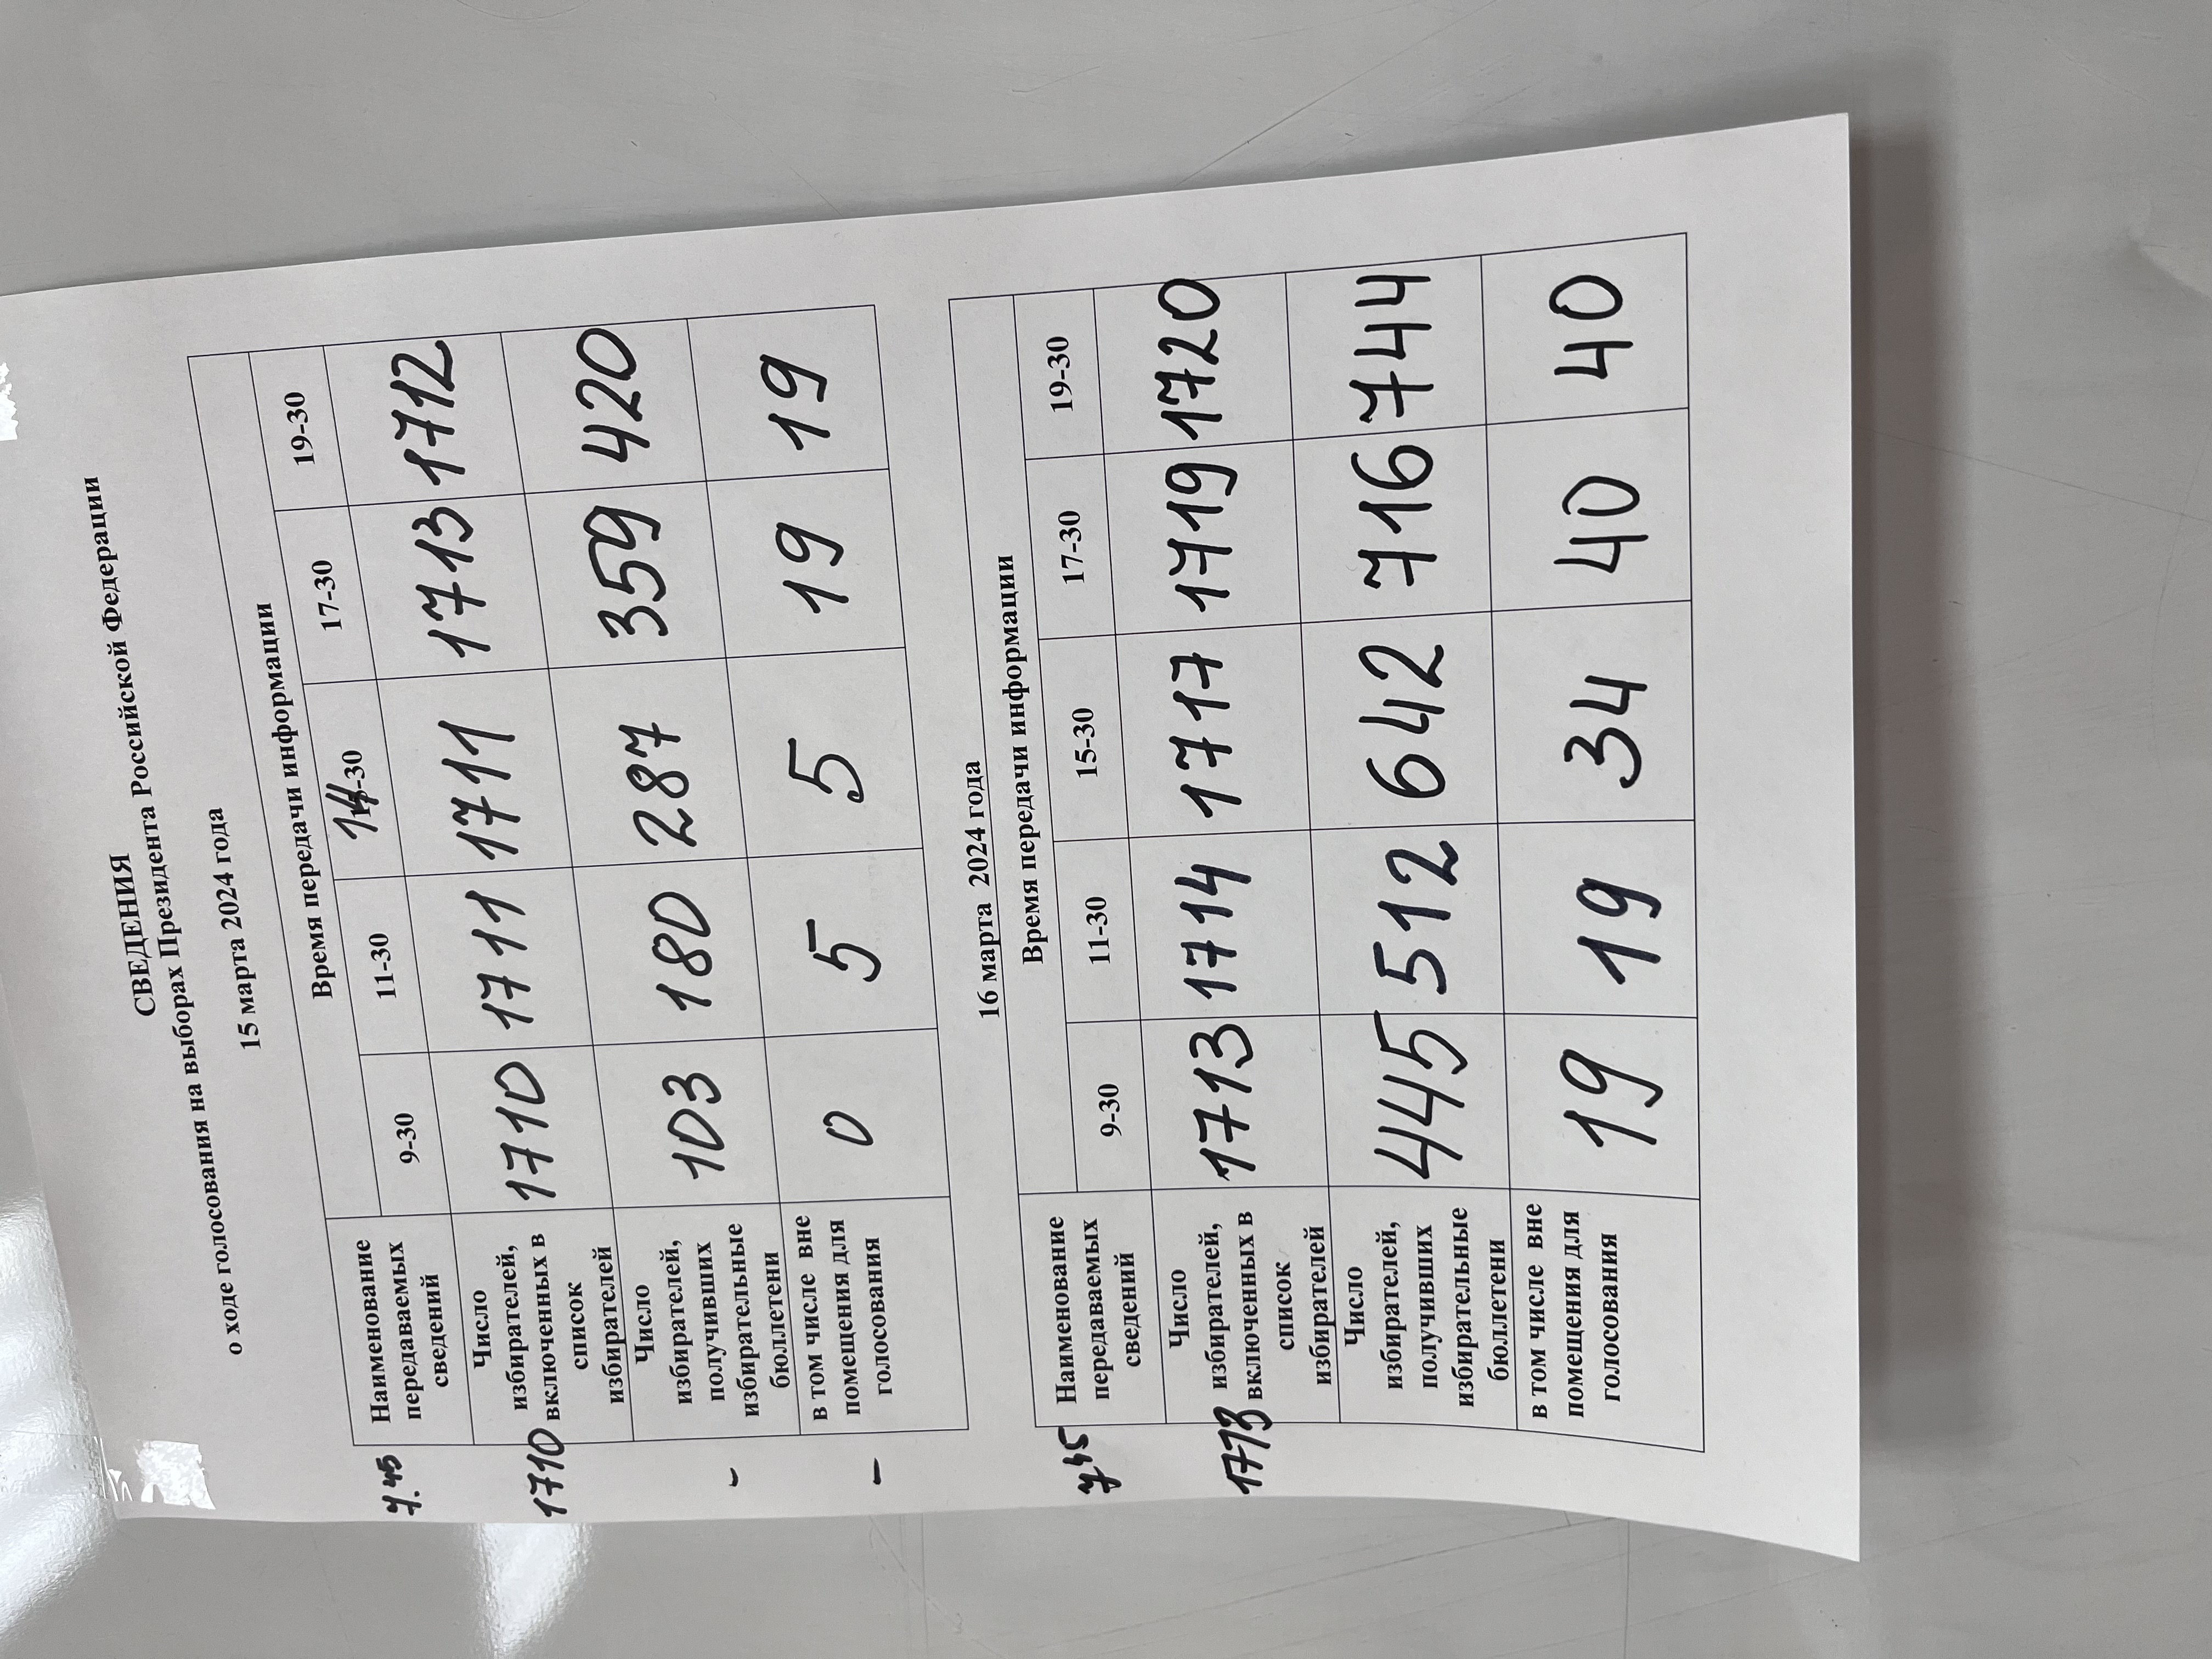 СВЕДЕНИЯ
о ходе голосования на выборах Президента Российской Федерации
15 марта 2024 года
7.45
Наименование передаваемых сведений
Время передачи информации
9-30 11-30 14-30 17-30 19-30
1710
Число
избирателей,
включенных в
список
избирателей
1710 1711 1711 1713 1712
-
Число
избирателей,
получивших
избирательные
бюллетени
103 180 287 359 420
-
в том числе вне
помещения для
голосования
0 5 5 19 19
16 марта 2024 года
7 45
Наименование
передаваемых
сведений
Время передачи информации
9-30 11-30 15-30 17-30 19-30
1713
Число
избирателей,
включенных в
список
избирателей
1713 1714 1717 1719 1720
Число
избирателей,
получивших
избирательные
бюллетени
445 512 642 716 744
в том числе вне
помещения для
голосования
19 19 34 40 40